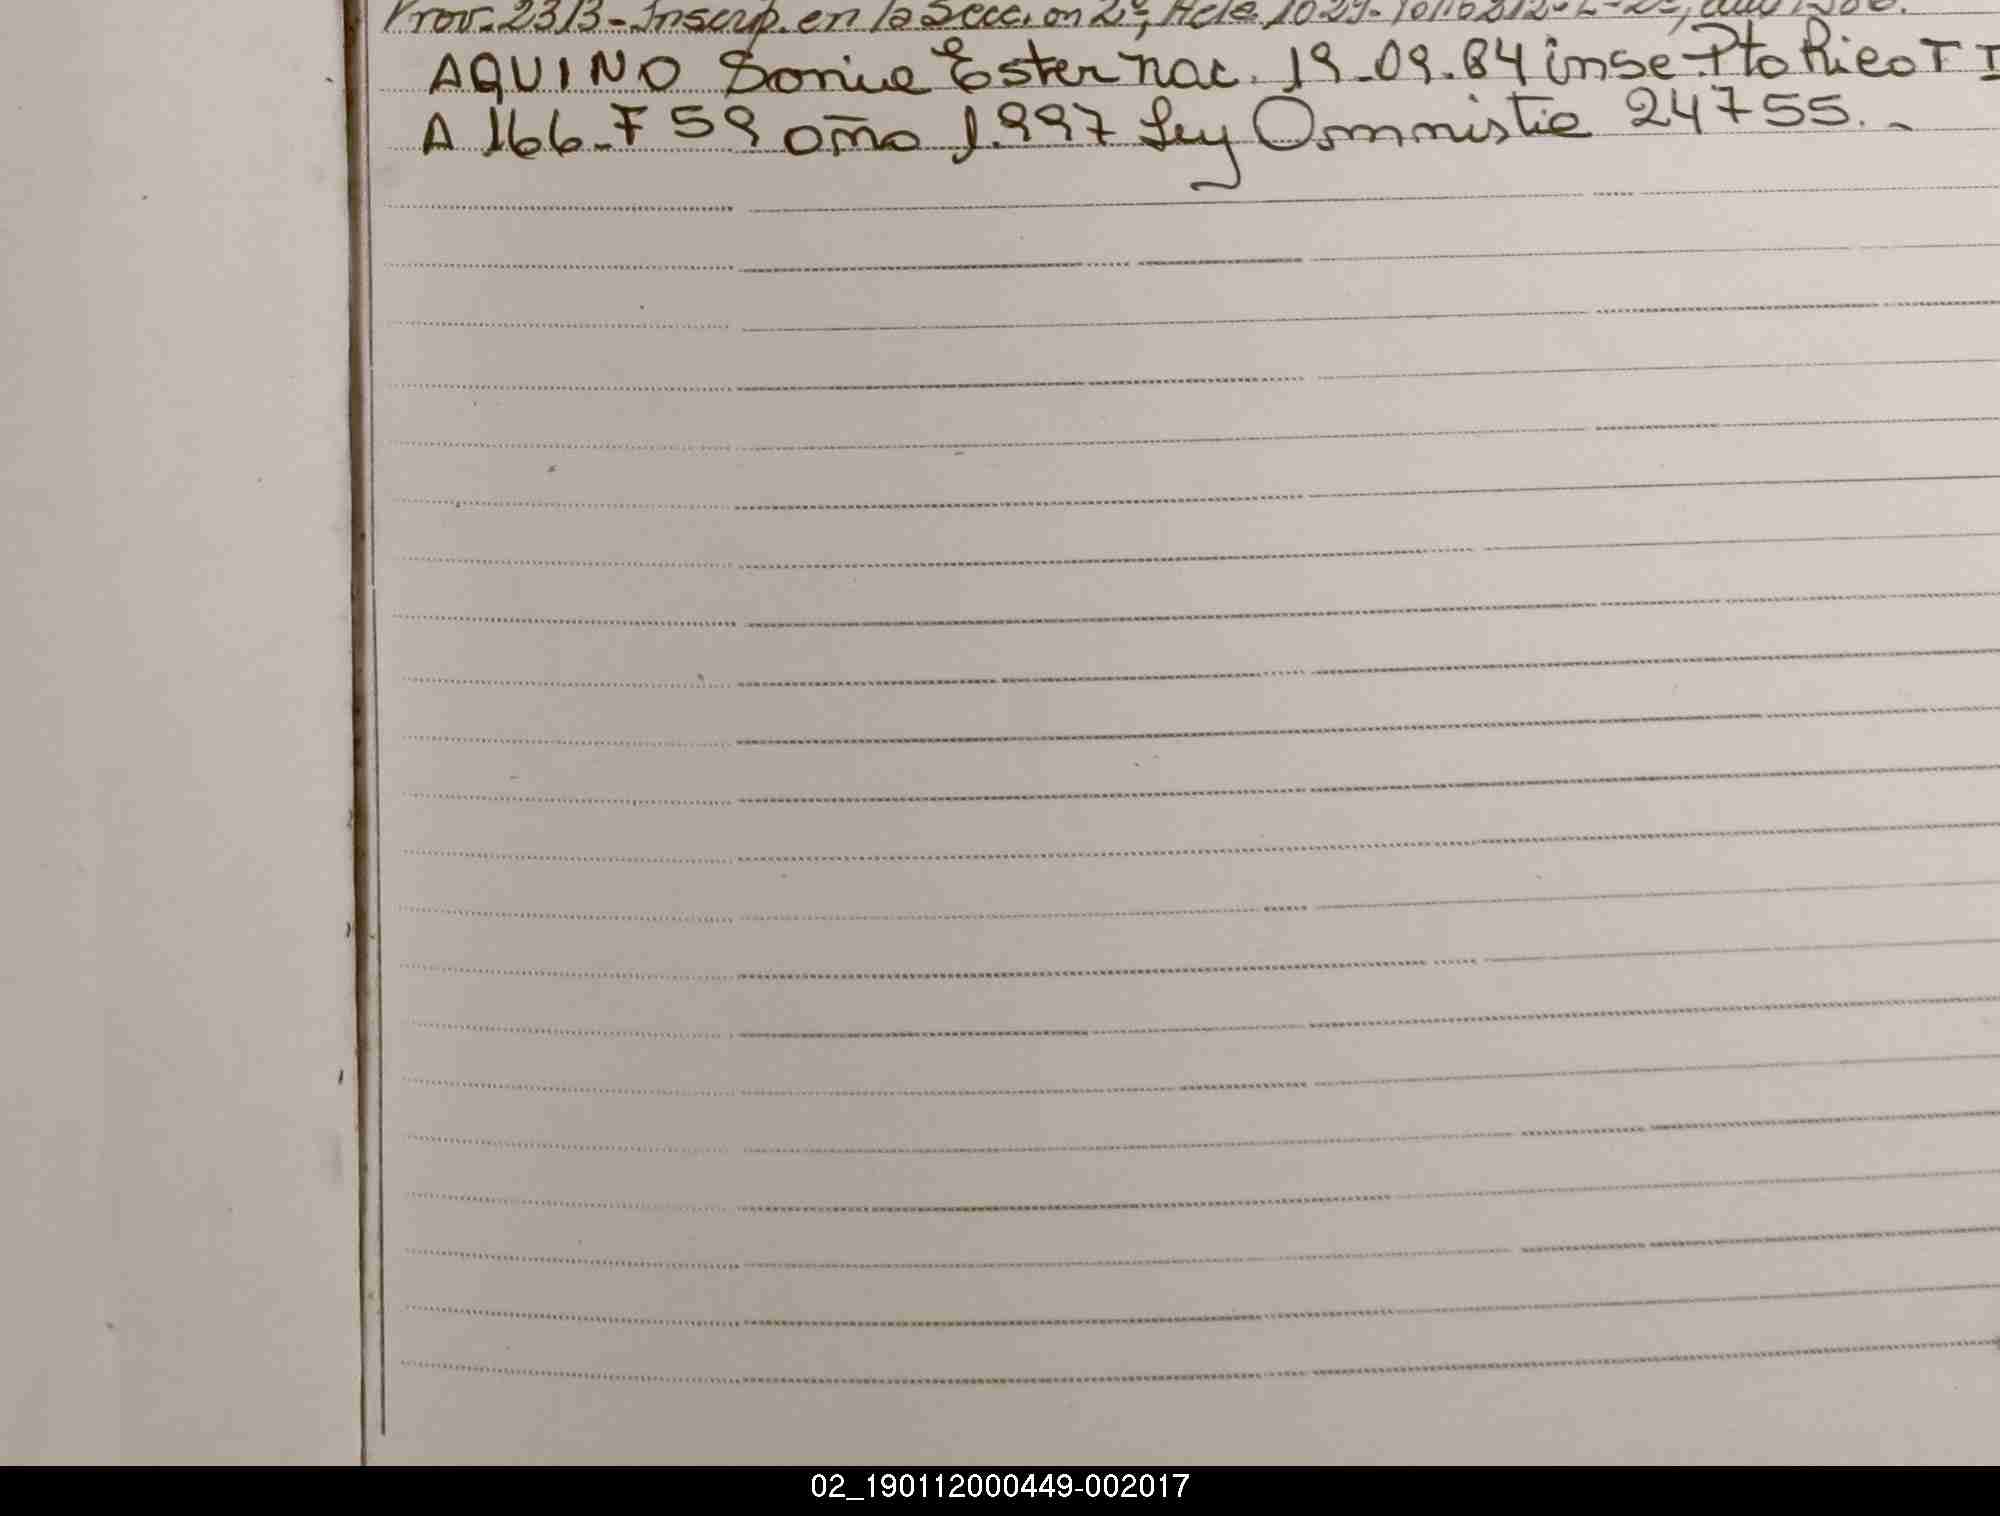 Prov. 2313 - Inscrip. en la Sección 2ª, Acta 1029-
AQUINO Sonia Ester nac. 19-09.84 insc Pto Rico T I
A 166-F 59 año 1.997 Ley Ommistia 24755.-
02_190112000449-002017